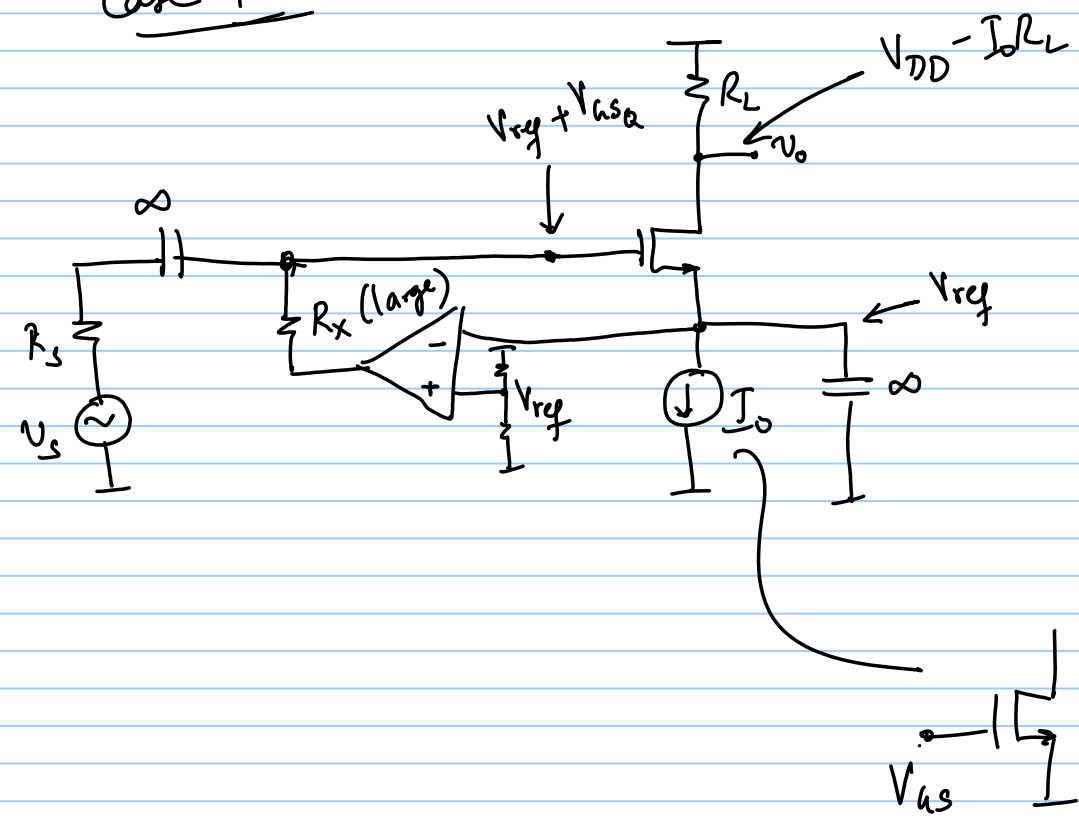 Case
V_DD - I_0R_L
R_L
V_ref + V_GSQ
v_o
∞
R_x (large)
V_ref
R_s
-
+
V_ref
I_0
∞
v_s
V_GS